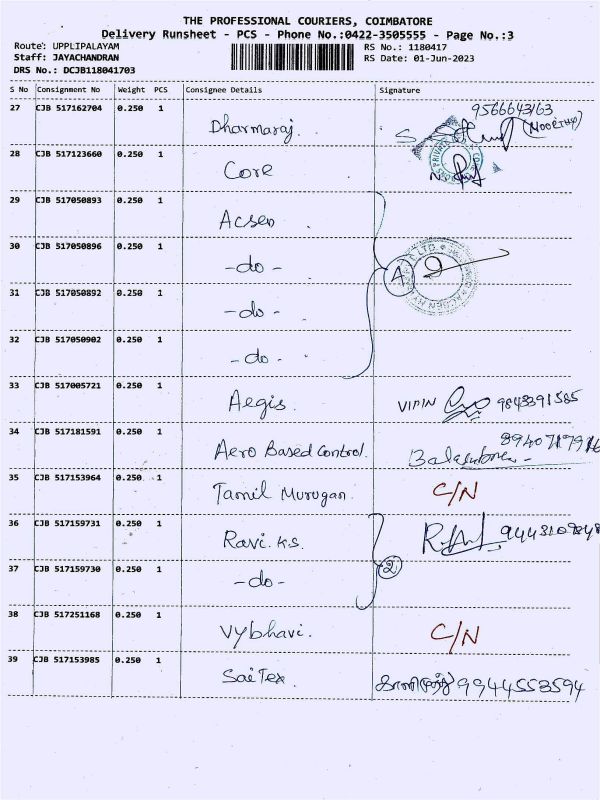 THE PROFESSIONAL COURIERS, COIMBATORE
Delivery Runsheet - PCS - Phone No.:0422-3505555 - Page No.:3
Route: UPPLIPALAYAM RS No.: 1180417
Staff: JAYACHANDRAN RS Date: 01-Jun-2023
DRS No.: DCJB118041703
S No Consignment No Weight PCS Consignee Details Signature
27 CJB 517162704 0.250 1 Dharmaraj. 9566643163 (MOORTHY)
28 CJB 517123660 0.250 1 Core
29 CJB 517050893 0.250 1 Acsen
30 CJB 517050896 0.250 1 -do- 4
31 CJB 517050892 0.250 1 -do-
32 CJB 517050902 0.250 1 -do-
33 CJB 517005721 0.250 1 Aegis. VIPIN 9843391585
34 CJB 517181591 0.250 1 Aero Based Control.
35 CJB 517153964 0.250 1 Tamil Murugan C/N
36 CJB 517159731 0.250 1 Ravi. K.S.
37 CJB 517159730 0.250 1 -do- 2
38 CJB 517251168 0.250 1 Vybhavi. C/N
39 CJB 517153985 0.250 1 Sai Tex. 9944553594